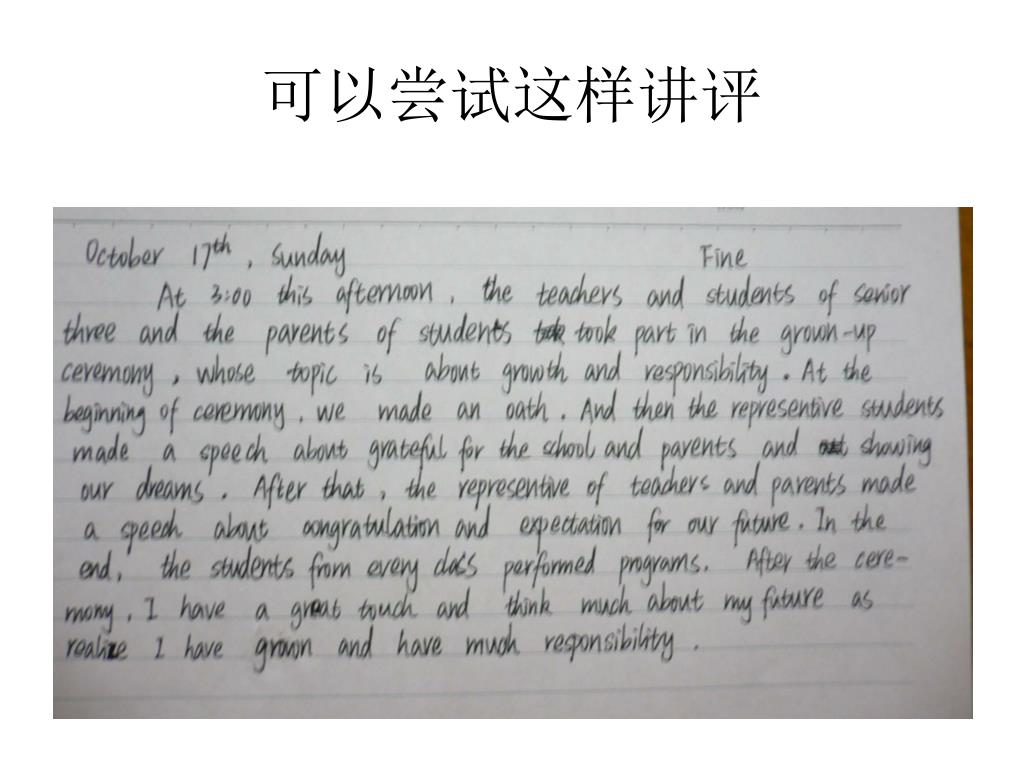 可以尝试这样讲评
October 17th, Sunday Fine
At 3:00 this afternoon, the teachers and students of senior
three and the parents of students took part in the grown-up
ceremony, whose topic is about growth and responsibility. At the
beginning of ceremony, we made an oath. And then the representive students
made a speech about grateful for the school and parents and showing
our dreams. After that, the representive of teachers and parents made
a speech about congratulation and expectation for our future. In the
end, the students from every class performed programs. After the cere-
mony, I have a great touch and think much about my future as
realize I have grown and have much responsibility.